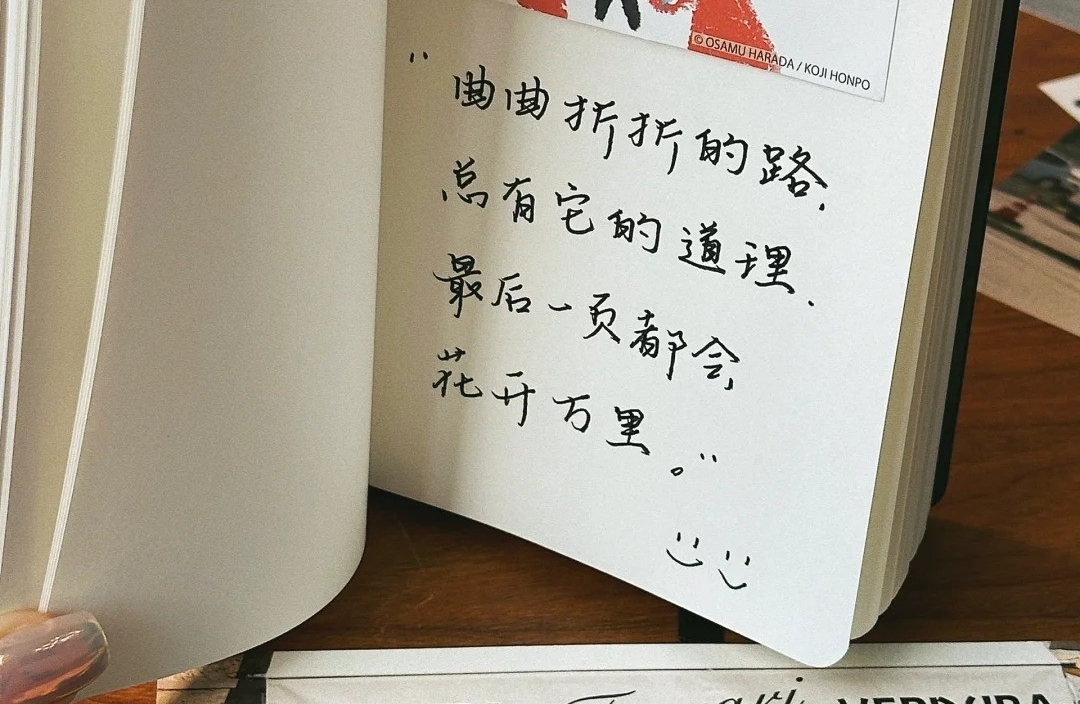 © OSAMU HARADA / KOJI HONPO
“曲曲折折的路，
总有它的道理，
最后一页都会，
花开万里。”